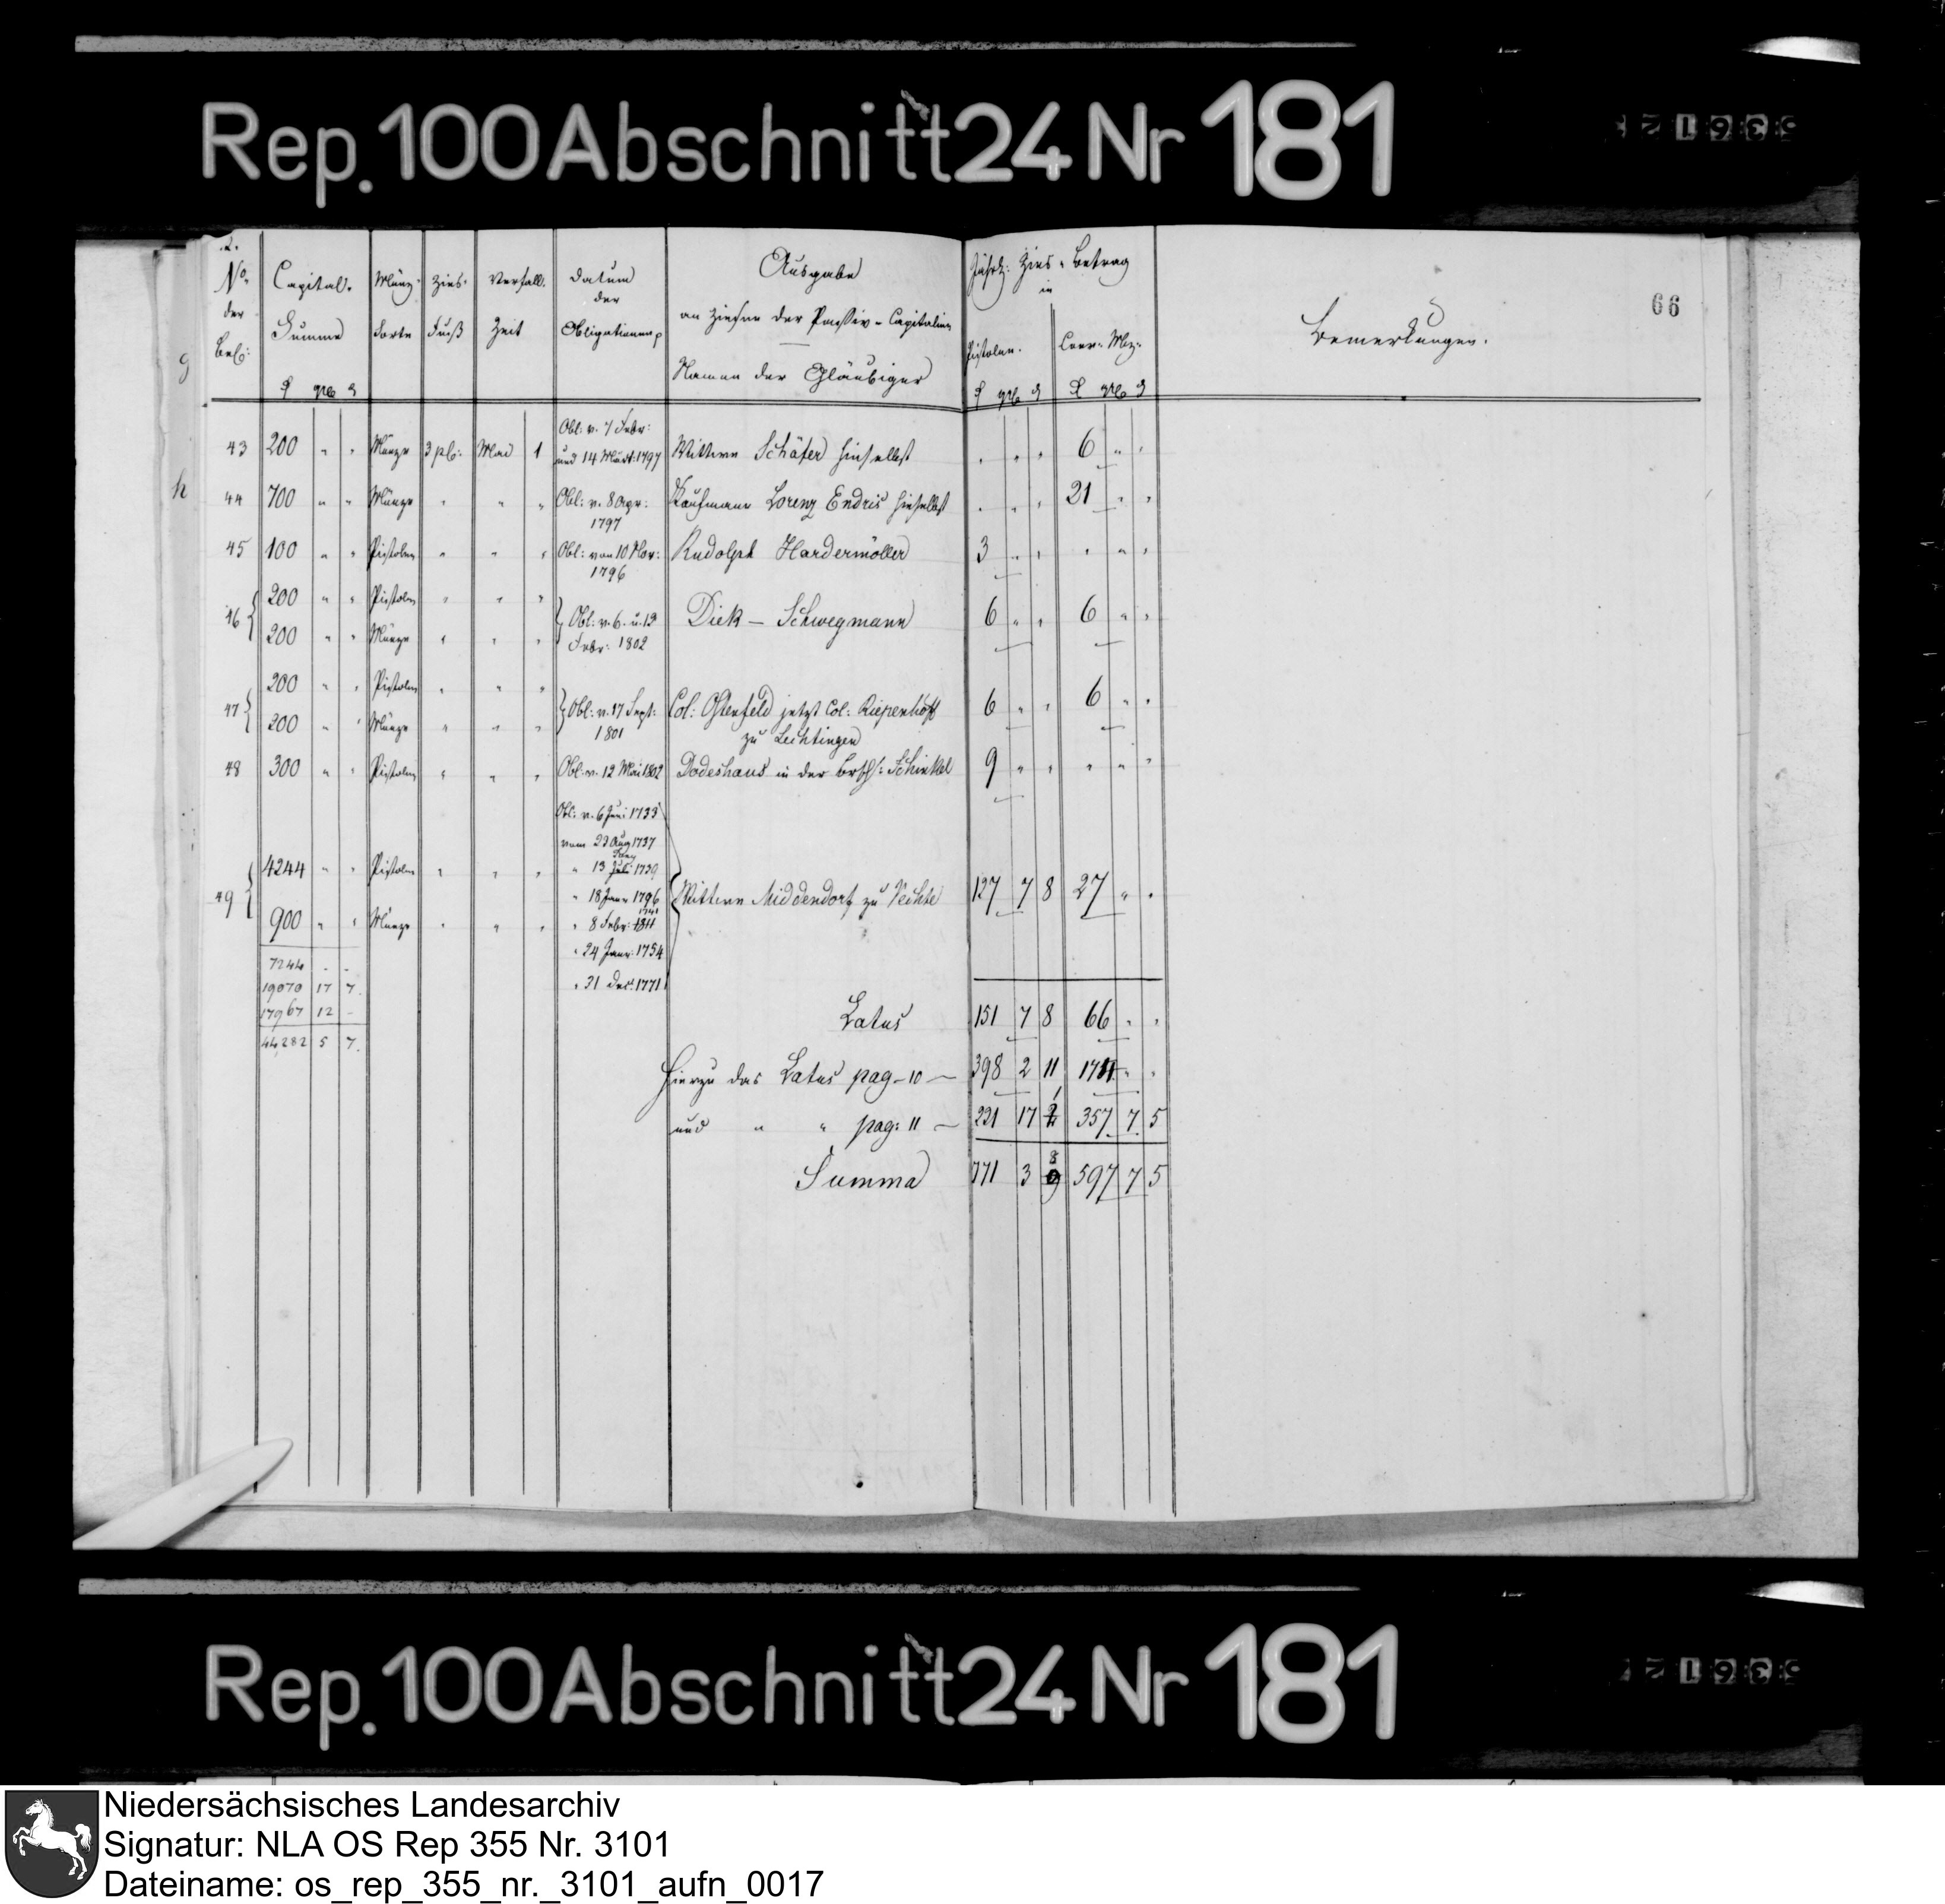 Rep. 100 Abschnitt 24 Nr 181
66
No. der Bel:
Capital- Summe
Münz- Sorte
Zins- Fuß
Verfall- Zeit
Datum der Obligationen
Ausgabe
an Zinsen der Passiv-Capitalien
Namen der Gläubiger
Jährl: Zins-Betrag in
Pistolen. Conv. Mz.
Bemerkungen.
g
h
43 200 " " Münze 3 pC: Mai 1 Obl: v. 7 Febr: und 14 Märt: 1797 Wittwe Schäfer hieselbst " " " 6 " "
44 700 " " Münze " " " Obl: v. 8 Apr: 1797 Kaufmann Lorenz Endris hieselbst " " " 21 " "
45 100 " " Pistolen " " " Obl: von 10 Nov: 1796 Rudolph Hardermöller 3 " " " " "
46 { 200 " " Pistolen " " "
200 " " Münze " " " } Obl: v. 6. u. 13 Febr: 1802 Diek – Schwegmann 6 " " 6 " "
47 { 200 " " Pistolen " " "
200 " " Münze " " " } Obl: v. 17 Sept: 1801 Col: Osterfeld jetzt Col: Riepenhoff 6 " " 6 " "
zu Lechtingen
48 300 " " Pistolen " " " Obl: v. 12 Mai 1802 Dodeshaus in der Brsch: Schinkel 9 " " " " "
Obl: v. 6 Juni 1733
vom 23 Aug 1737
49 { 4244 " " Pistolen " " " " 13 Juli 1739
" 18 Janr 1796 Wittwe Middendorf zu Vechte 127 7 8 27 " "
900 " " Münze " " " " 8 Febr: 1811 1741
" 24 Janr: 1754
" 31 Decr 1771
7244 - -
19070 17 7.
17967 12 -
44,282 5 7.
Latus 151 7 8 66 " "
Hierzu das Latus pag – 10 – 398 2 11 174 " "
und " " pag: 11 – 221 17 1 357 7 5
Summa 771 3 8 597 7 5
Rep. 100 Abschnitt 24 Nr 181
Niedersächsisches Landesarchiv
Signatur: NLA OS Rep 355 Nr. 3101
Dateiname: os_rep_355_nr._3101_aufn_0017